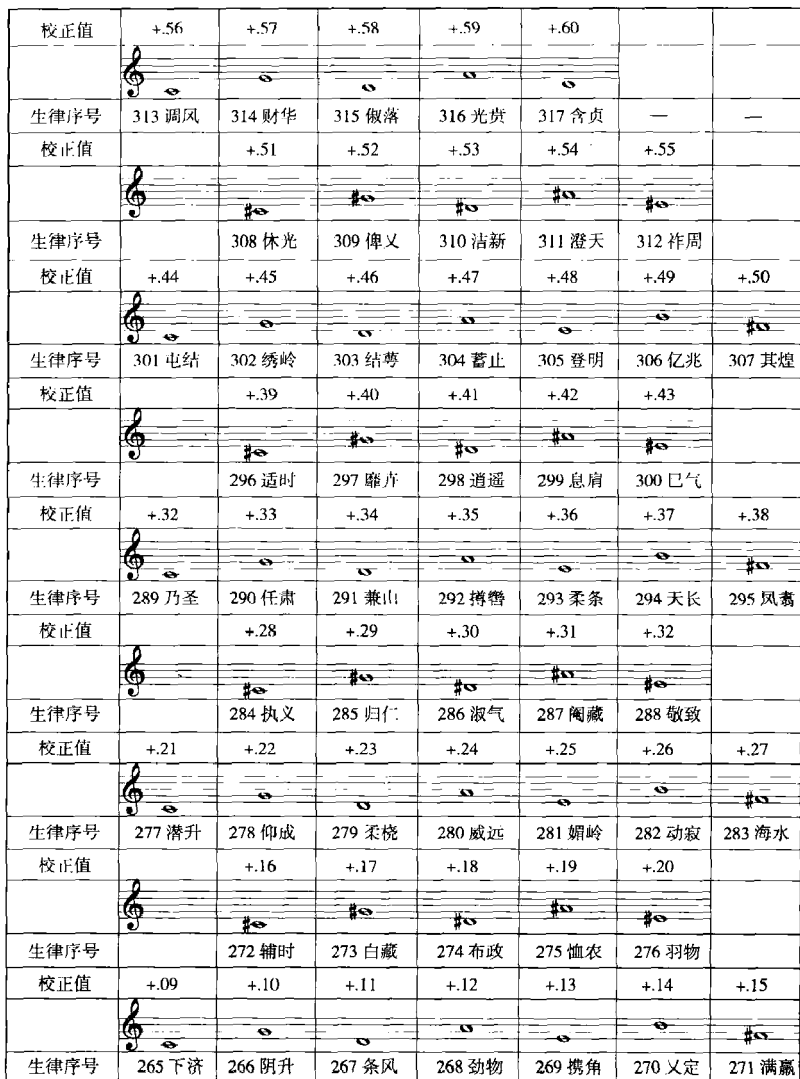 校正值 +.56 +.57 +.58 +.59 +.60
生律序号 313 调风 314 财华 315 俶落 316 光贲 317 含贞 — —
校正值 +.51 +.52 +.53 +.54 +.55
生律序号 308 休光 309 俾乂 310 洁新 311 澄天 312 祚周
校正值 +.44 +.45 +.46 +.47 +.48 +.49 +.50
生律序号 301 屯结 302 绣岭 303 结萼 304 蓄止 305 登明 306 亿兆 307 其煌
校正值 +.39 +.40 +.41 +.42 +.43
生律序号 296 适时 297 靡卉 298 逍遥 299 息肩 300 巳气
校正值 +.32 +.33 +.34 +.35 +.36 +.37 +.38
生律序号 289 乃圣 290 任肃 291 兼山 292 搏辔 293 柔条 294 天长 295 凤翥
校正值 +.28 +.29 +.30 +.31 +.32
生律序号 284 执义 285 归仁 286 淑气 287 阉藏 288 敬致
校正值 +.21 +.22 +.23 +.24 +.25 +.26 +.27
生律序号 277 潜升 278 仰成 279 柔桡 280 威远 281 媚岭 282 动寂 283 海水
校正值 +.16 +.17 +.18 +.19 +.20
生律序号 272 辅时 273 白藏 274 布政 275 恤农 276 羽物
校正值 +.09 +.10 +.11 +.12 +.13 +.14 +.15
生律序号 265 下济 266 阴升 267 条风 268 劲物 269 携角 270 乂定 271 满羸